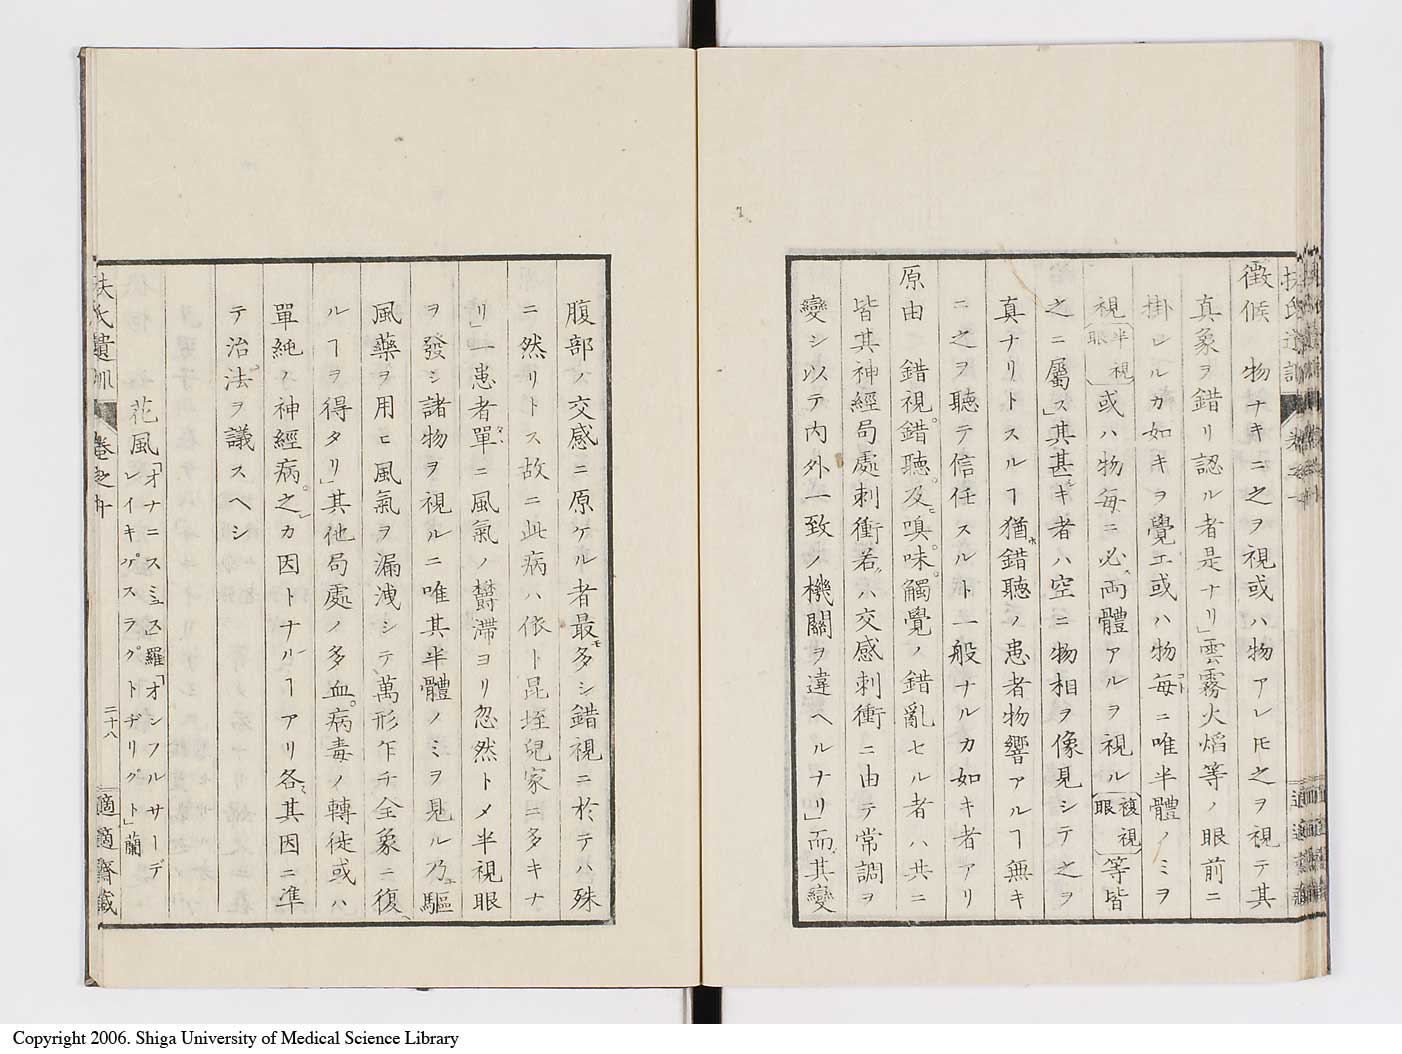 徴候 物ナキニ之ヲ視或ハ物アレ𪜈之ヲ視テ其
真象ヲ錯リ認ル者是ナリ」雲霧火焰等ノ眼前ニ
掛レルカ如キヲ覺エ或ハ物毎ニ唯半體ノミヲ
視(半視眼)或ハ物毎ニ必ス兩體アルヲ視ル(複視眼)等皆
之ニ屬ス」其甚キ者ハ空ニ物相ヲ像見シテ之ヲ
真ナリトスルヿ猶錯聽ノ患者物響アルヿ無キ
ニ之ヲ聽テ信任スルト一般ナルカ如キ者アリ
原由 錯視。錯聽。及ヒ嗅。味。觸覺ノ錯亂セル者ハ共ニ
皆其神經局處刺衝若ハ交感刺衝ニ由テ常調ヲ
變シ以テ内外一致ノ機關ヲ違ヘルナリ」而其變
腹部ノ交感ニ原ケル者最モ多シ錯視ニ於テハ殊
ニ然リトス故ニ此病ハ依卜昆垤兒家ニ多キナ
リ」一患者單ニ風氣ノ鬱滯ヨリ忽然トメ半視眼
ヲ發シ諸物ヲ視ルニ唯其半體ノミヲ見ル乃チ驅
風藥ヲ用ヒ風氣ヲ漏洩シテ、萬形乍チ全象ニ復
ルヿヲ得タリ」其他局處ノ多血。病毒ノ轉徙或ハ
單純ノ神經病。之カ因トナルヿアリ各其因ニ準
テ治法ヲ議スヘシ
花風「オナニスミュス」羅「オンフルサーデ
レイキガスラグトヂリグト」蘭
扶氏遺訓 卷之十 二十八 適適齋藏